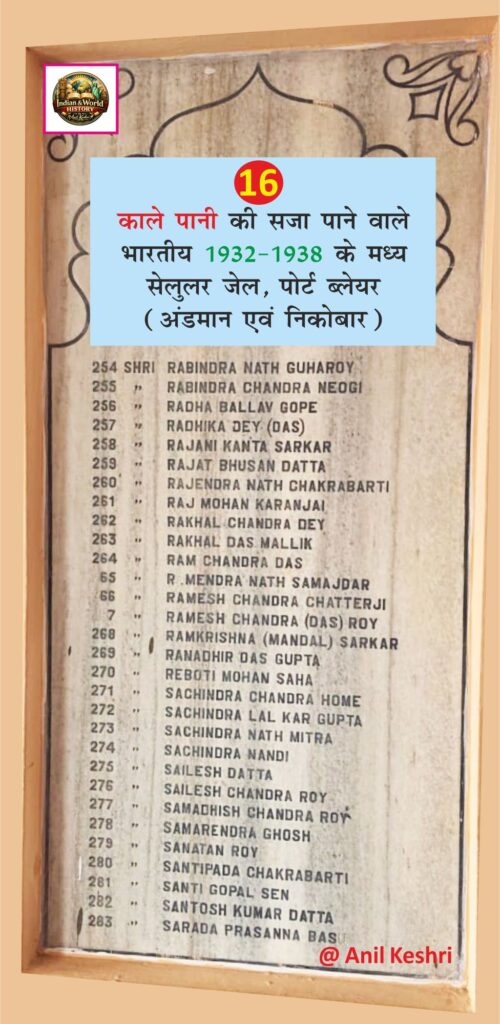 Indian & World
HISTORY
16
काले पानी की सजा पाने वाले
भारतीय 1932-1938 के मध्य
सेलुलर जेल, पोर्ट ब्लेयर
( अंडमान एवं निकोबार )
254 SHRI RABINDRA NATH GUHAROY
255 " RABINDRA CHANDRA NEOGI
256 " RADHA BALLAV GOPE
257 " RADHIKA DEY (DAS)
258 " RAJANI KANTA SARKAR
259 " RAJAT BHUSAN DATTA
260 " RAJENDRA NATH CHAKRABARTI
261 " RAJ MOHAN KARANJAI
262 " RAKHAL CHANDRA DEY
263 " RAKHAL DAS MALLIK
264 " RAM CHANDRA DAS
65 " R .MENDRA NATH SAMAJDAR
66 " RAMESH CHANDRA CHATTERJI
7 " RAMESH CHANDRA (DAS) ROY
268 " RAMKRISHNA (MANDAL) SARKAR
269 " RANADHIR DAS GUPTA
270 " REBOTI MOHAN SAHA
271 " SACHINDRA CHANDRA HOME
272 " SACHINDRA LAL KAR GUPTA
273 " SACHINDRA NATH MITRA
274 " SACHINDRA NANDI
275 " SAILESH DATTA
276 " SAILESH CHANDRA ROY
277 " SAMADHISH CHANDRA ROY
278 " SAMARENDRA GHOSH
279 " SANATAN ROY
280 " SANTIPADA CHAKRABARTI
281 " SANTI GOPAL SEN
282 " SANTOSH KUMAR DATTA
283 " SARADA PRASANNA BASU
@ Anil Keshri